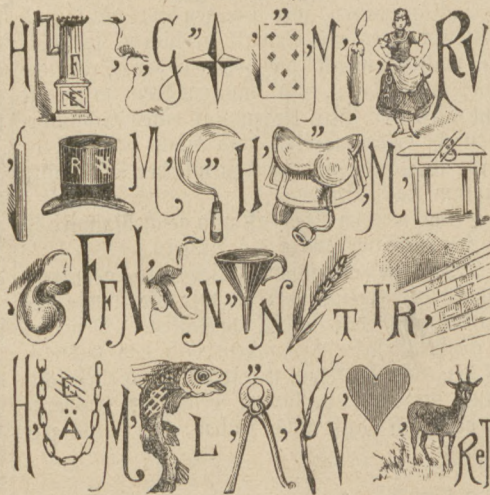 H F E , , G ,, ,, , M , RV
, R M , ,, H , ,, , M ,
, FFN , , N ,, N T TR ,
H , E Ä , M , L , ,, , , V , ReT